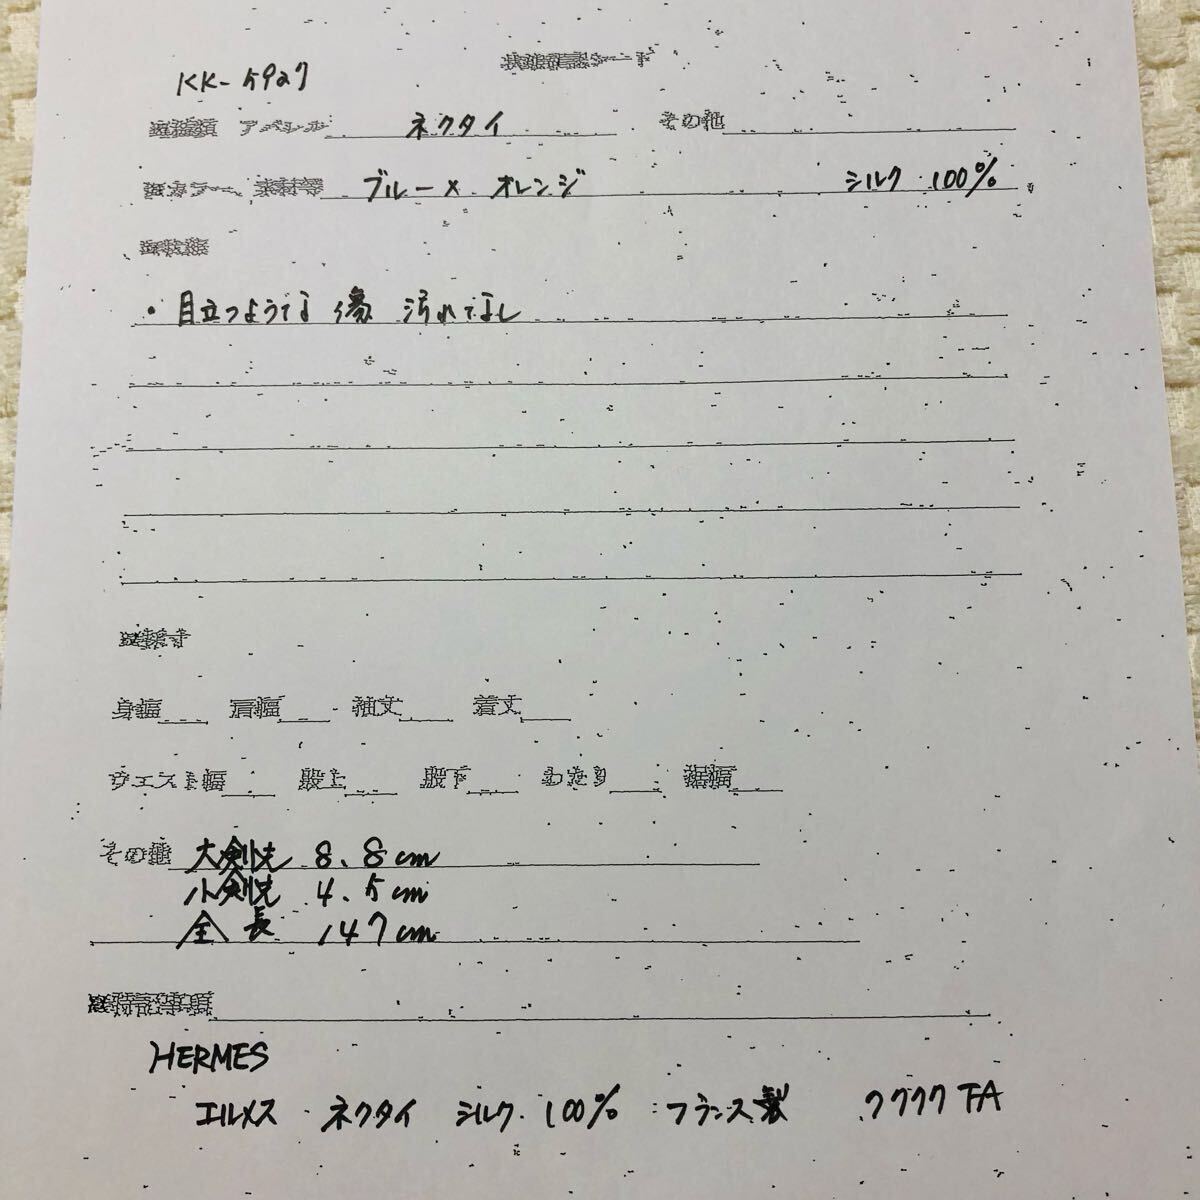 KK-5927
アパレル ネクタイ その他
カラー、素材等 ブルー× オレンジ シルク 100%
・目立つような 傷 汚れてなし
身幅 肩幅 袖丈 着丈
ウエスト幅 股上 股下 わたり 裾幅
その他 大剣先 8.8cm
小剣先 4.5cm
全長 147cm
※特記事項
HERMES
エルメス ネクタイ シルク 100% フランス製 7777 TA